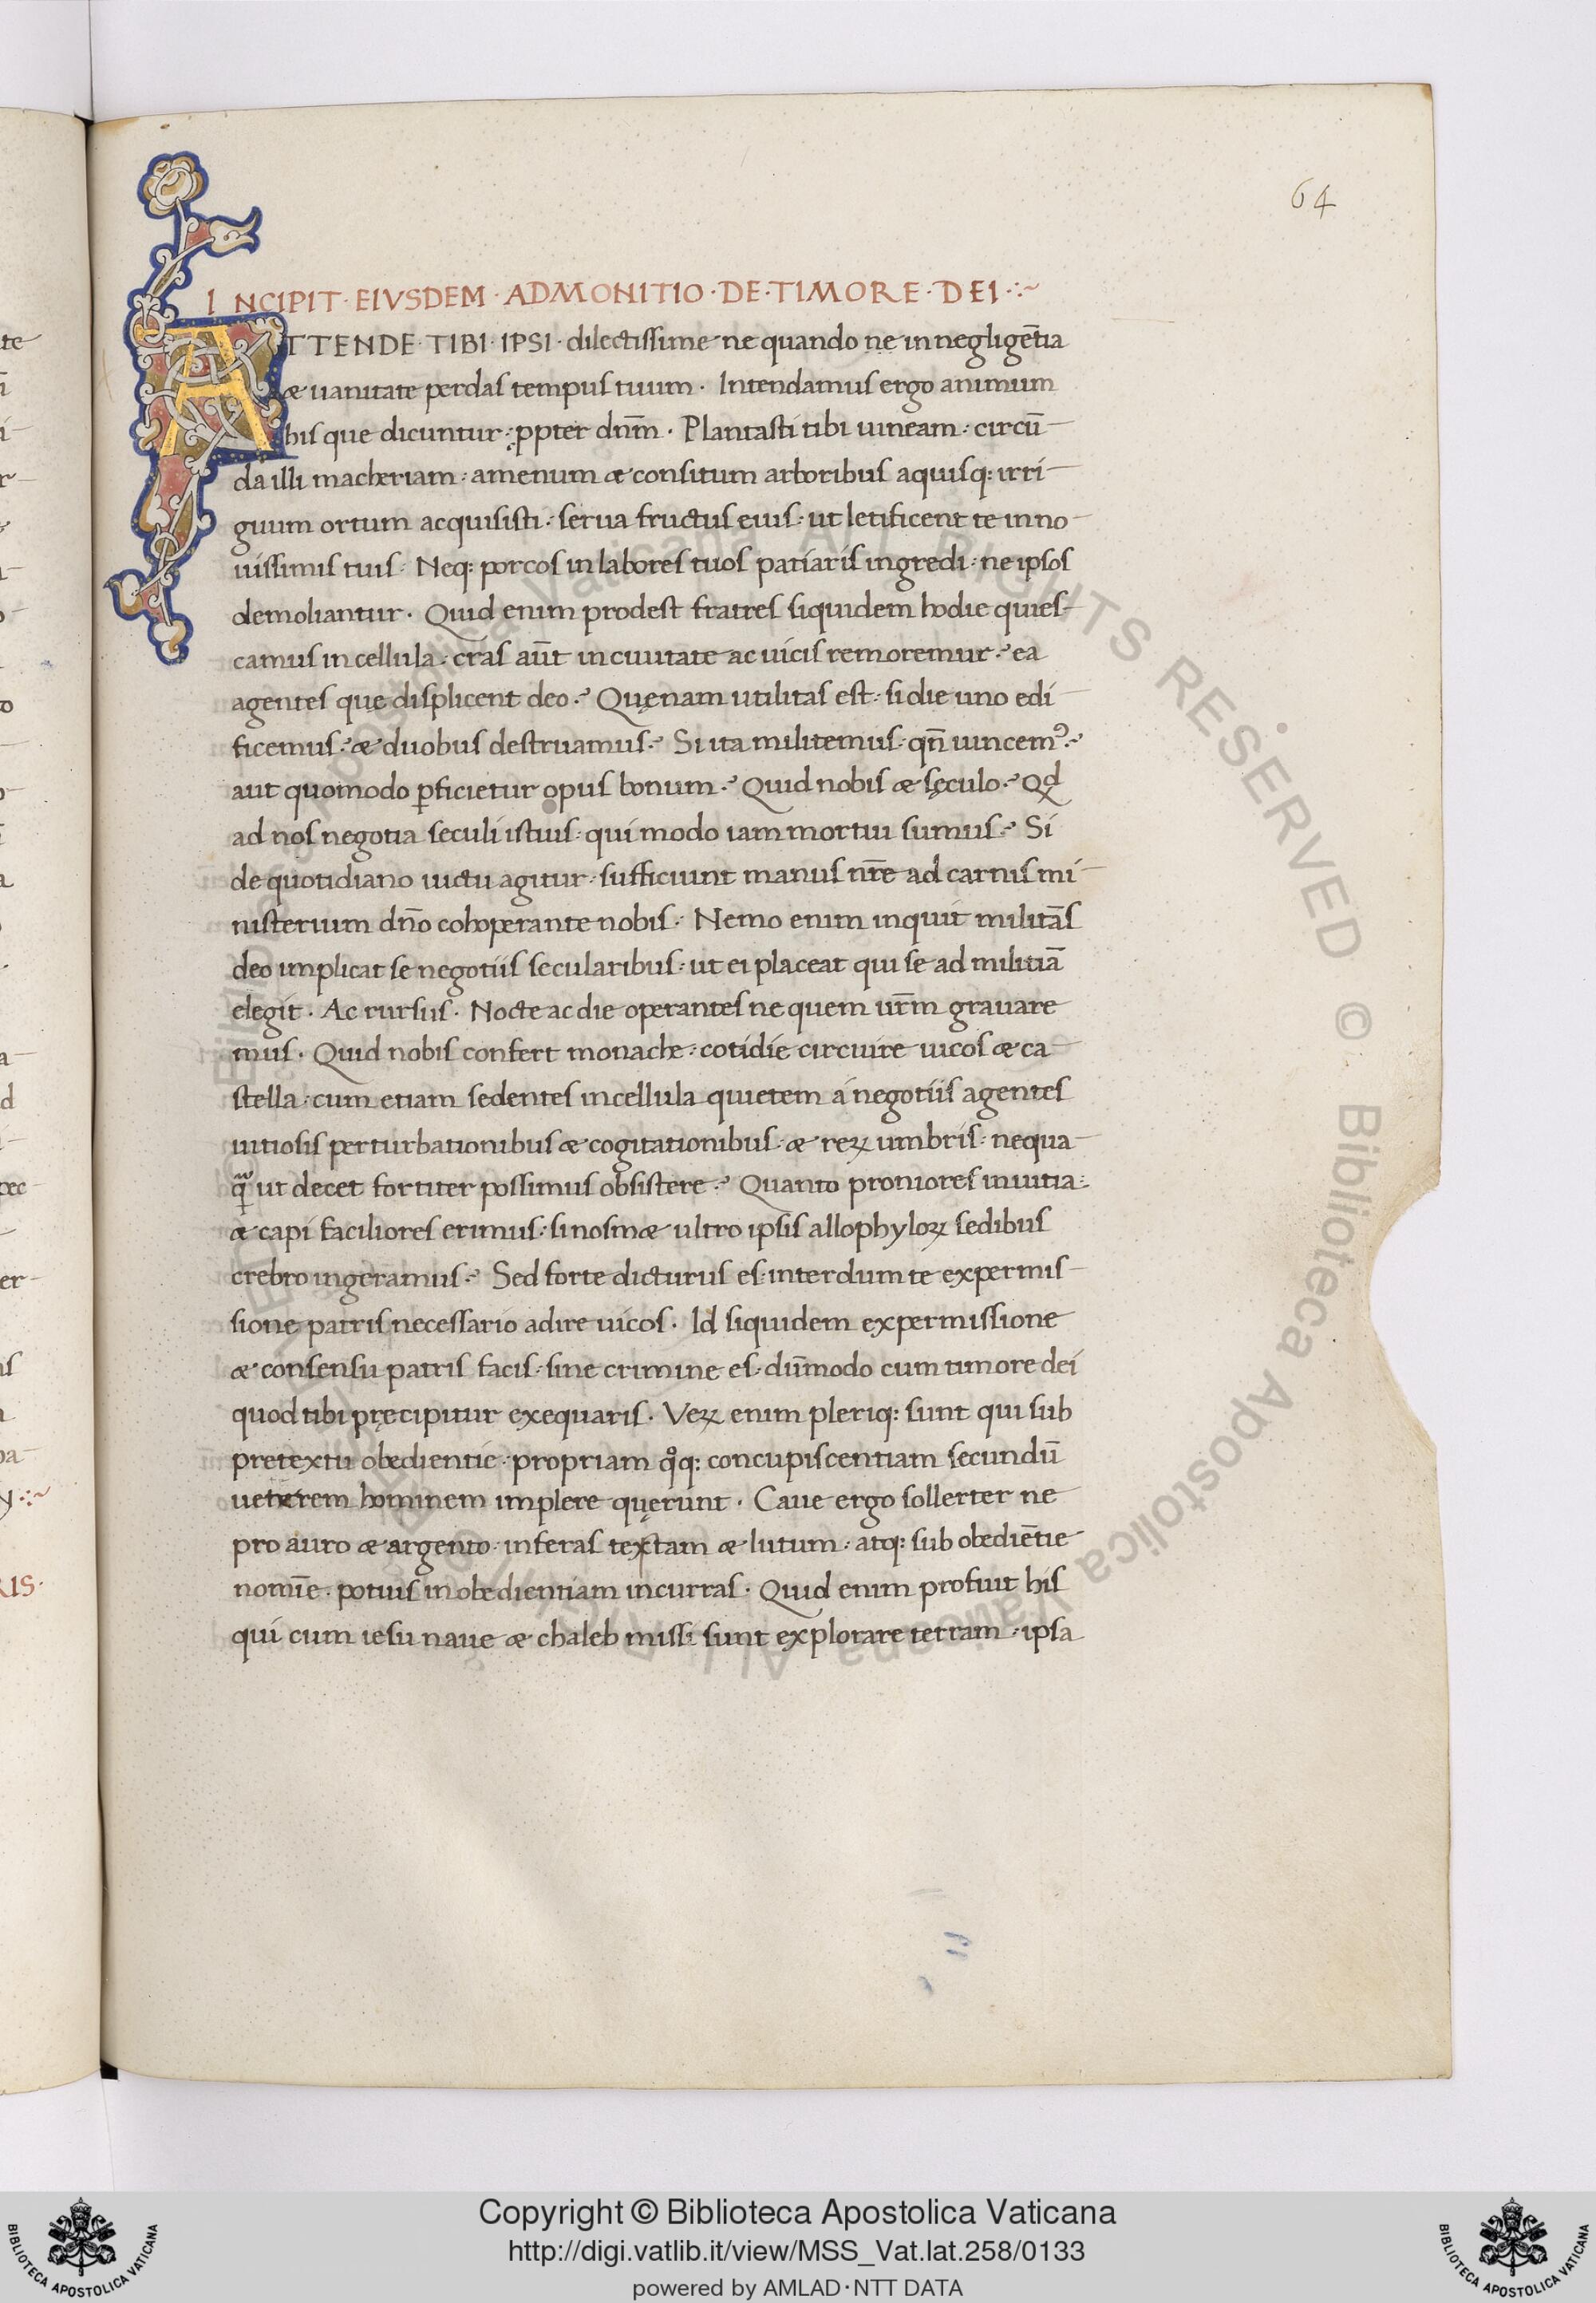 64
INCIPIT · EIVSDEM · ADMONITIO · DE · TIMORE · DEI ·:~
ATTENDE · TIBI · IPSI · dilectissime ne quando ne in negligẽtia
æ uanitate perdas tempus tuum · Intendamus ergo animum
his que dicuntur : ppter dnm̄ · Plantasti tibi uineam : circū
da illi macheriam : amenum æ consitum arboribus aquisq: irri
guum ortum acquisisti : serua fructus eius · ut letificent te in no
uissimis tuis · Neq: porcos in labores tuos patiaris ingredi : ne ipsos
demoliantur · Quid enim prodest fratres siquidem hodie quies
camus in cellula · cras aūt in ciuitate ac uicis remoremur : ea
agentes que displicent deo ·? Quęnam utilitas est · si die uno edi
ficemus ·? æ duobus destruamus ·? Si ita militemus · qn̄ uincemꝰ ·?
aut quomodo ꝑficietur opus bonum ·? Quid nobis æ sęculo ·? Qd
ad nos negotia seculi istius · qui modo iam mortui sumus ·? Si
de quotidiano uictu agitur · sufficiunt manus nr̄e ad carnis mi
nisterium dn̄o cohoperante nobis · Nemo enim inquit militās
deo implicat se negotiis secularibus : ut ei placeat qui se ad militiā
elegit · Ac rursus · Nocte ac die operantes ne quem ur̄m grauare
mus · Quid nobis confert monache : cotidie circuire uicos æ ca
stella · cum etiam sedentes in cellula quietem a negotiis agentes
uitiosis perturbationibus æ cogitationibus · æ reꝝ umbris · nequa
qᷓ ut decet fortiter possimus obsistere ·? Quanto proniores in uitia :
æ capi faciliores erimus : si nosmæ ultro ipsis allophyloꝝ sedibus
crebro ingeramus ·? Sed forte dicturus es · interdum te ex permis
sione patris necessario adire uicos · Id siquidem ex permissione
æ consensu patris facis · sine crimine es · dūmodo cum timore dei
quod tibi pręcipitur exequaris · Veꝝ enim pleriq: sunt qui sub
pretextu obedientie · propriam qͦq: concupiscentiam secundū
ueterem hominem implere quęrunt · Caue ergo sollerter ne
pro auro æ argento · inferas textam æ lutum · atq: sub obediētie
nomīe · potius inobedientiam incurras · Quid enim profuit his
qui cum iesu naue æ chaleb missi sunt explorare terram · ipsa
Copyright © Biblioteca Apostolica Vaticana
http://digi.vatlib.it/view/MSS_Vat.lat.258/0133
powered by AMLAD·NTT DATA